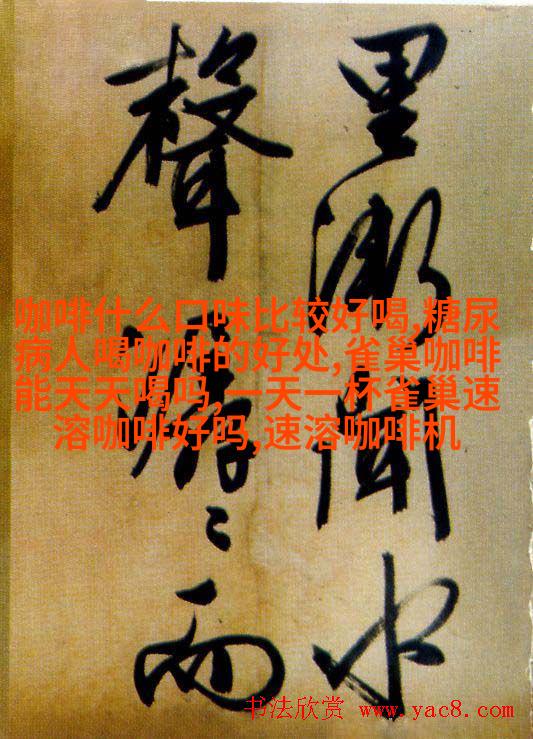 里渐闻水
声潺潺而
咖啡什么口味比较好喝,糖尿
病人喝咖啡的好处,雀巢咖啡
能天天喝吗,一天一杯雀巢速
溶咖啡好吗,速溶咖啡机
书法欣赏 www.yac8.com